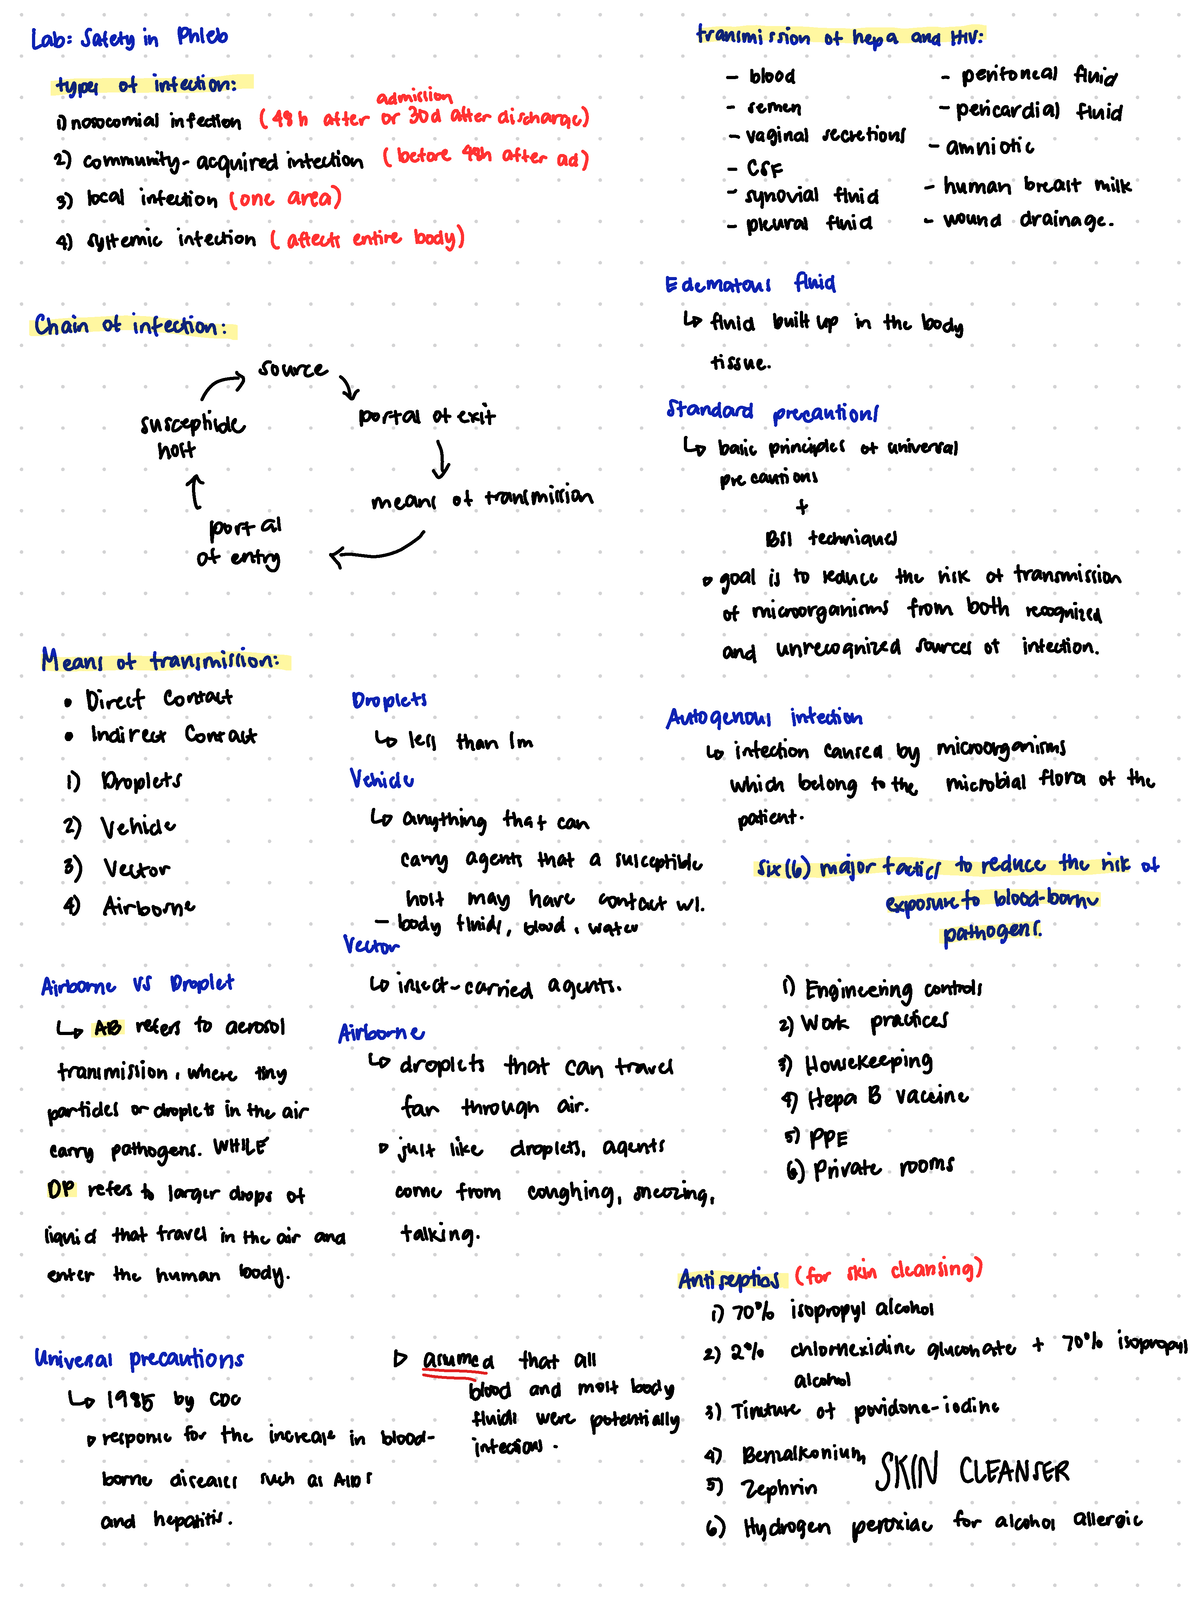 Lab: Safety in Phleb
types of infection:
1) nosocomial infection (48h after admission or 30d after discharge)
2) community-acquired infection (before 48h after ad)
3) local infection (one area)
4) systemic infection (affects entire body)
Chain of infection:
source
portal of exit
means of transmission
portal
of entry
susceptible
host
Means of transmission:
• Direct Contact
• Indirect Contact
1) Droplets
2) Vehicle
3) Vector
4) Airborne
Airborne vs Droplet
↳ AB refers to aerosol
transmission, where tiny
particles or droplets in the air
carry pathogens. WHILE
DP refers to larger drops of
liquid that travel in the air and
enter the human body.
Droplets
↳ less than 1m
Vehicle
↳ anything that can
carry agents that a susceptible
host may have contact w/.
- body fluids, blood, water
Vector
↳ insect-carried agents.
Airborne
↳ droplets that can travel
far through air.
▹ just like droplets, agents
come from coughing, sneezing,
talking.
Universal precautions
↳ 1985 by CDC
▹ response for the increase in blood-
borne diseases such as AIDS
and hepatitis.
▹ assumed that all
blood and most body
fluids were potentially
infectious.
transmission of hepa and HIV:
- blood
- semen
- vaginal secretions
- CSF
- synovial fluid
- pleural fluid
- peritoneal fluid
- pericardial fluid
- amniotic
- human breast milk
- wound drainage.
Edematous fluid
↳ fluid built up in the body
tissue.
Standard precautions
↳ basic principles of universal
precautions
+
BSI techniques
▹ goal is to reduce the risk of transmission
of microorganisms from both recognized
and unrecognized sources of infection.
Autogenous infection
↳ infection caused by microorganisms
which belong to the microbial flora of the
patient.
six (6) major tactics to reduce the risk of
exposure to blood-borne
pathogens.
1) Engineering controls
2) Work practices
3) Housekeeping
4) Hepa B vaccine
5) PPE
6) Private rooms
Antiseptics (for skin cleansing)
1) 70% isopropyl alcohol
2) 2% chlorhexidine gluconate + 70% isopropyl
alcohol
3) Tincture of povidone-iodine
4) Benzalkonium
5) Zephrin
SKIN CLEANSER
6) Hydrogen peroxide for alcohol allergic